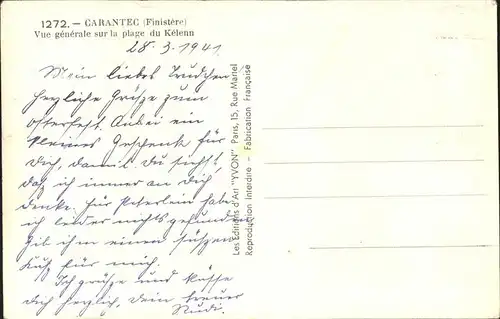 1272. — CARANTEC (Finistère)
Vue générale sur la plage du Kélenn
28.3.1941
Mein liebes Trudchen!
Herzliche Grüße zum
Osterfest. Anbei ein
kleines Geschenk für
Dich, damit Du siehst,
daß ich immer an Dich
denke. Für Peterlein habe
ich leider nichts gefunden
gib ihm einen süßen
Kuß für mich.
Ich grüße und küsse
Dich herzlich, Dein treuer
Rudi.
Les Editions d'Art "YVON" Paris, 15, Rue Martel
Reproduction interdite - Fabrication Française